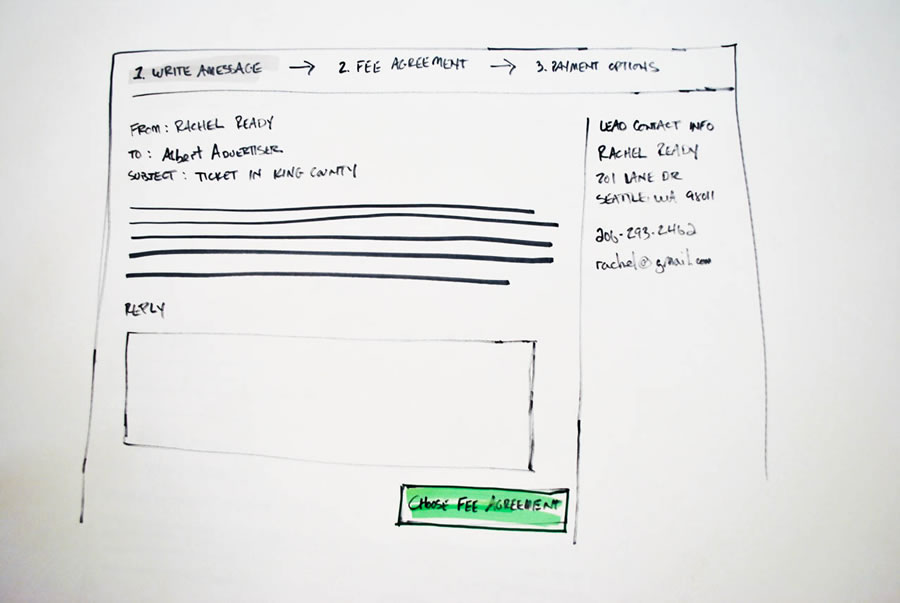 1. WRITE A MESSAGE → 2. FEE AGREEMENT → 3. PAYMENT OPTIONS
FROM: RACHEL READY
TO: Albert ADVERTISER
SUBJECT: TICKET IN KING COUNTY
REPLY
CHOOSE FEE AGREEMENT
LEAD CONTACT INFO
RACHEL READY
201 LANE DR
SEATTLE, WA 98011
206-293-2462
rachel@gmail.com